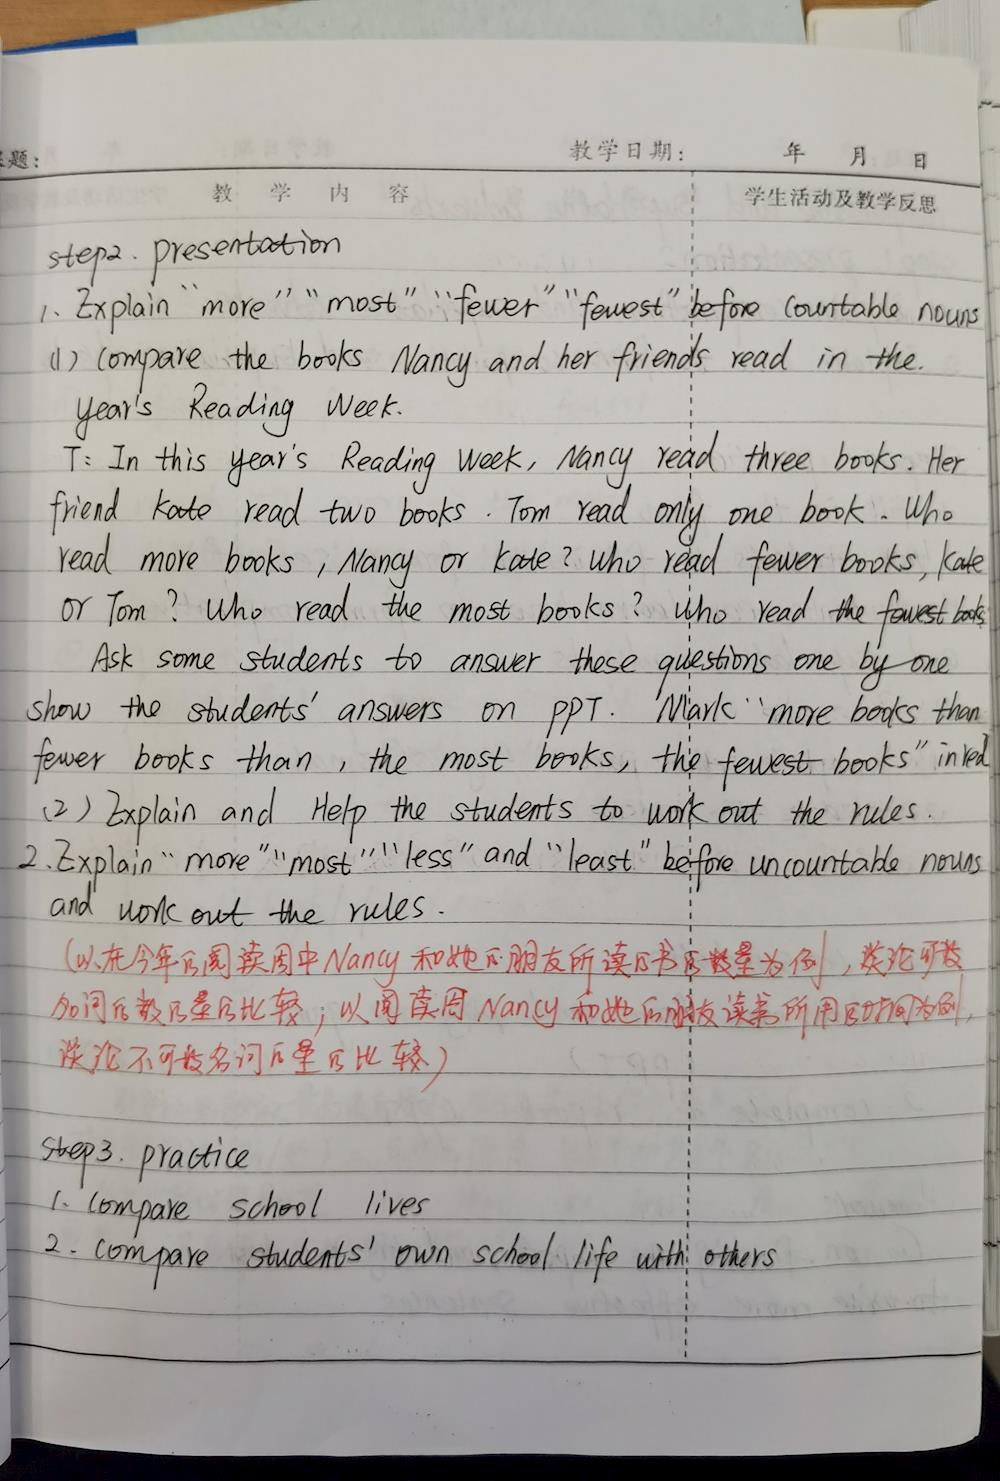 题:
教学日期: 年 月 日
教 学 内 容 学生活动及教学反思
step2. presentation
1. Explain "more" "most" "fewer" "fewest" before countable nouns
(1) compare the books Nancy and her friends read in the.
year's Reading Week.
T: In this year's Reading Week, Nancy read three books. Her
friend Kate read two books. Tom read only one book. Who
read more books, Nancy or Kate? Who read fewer books, Kate
or Tom? Who read the most books? Who read the fewest books
Ask some students to answer these questions one by one
show the students' answers on PPT. Mark "more books than
fewer books than, the most books, the fewest books" in red
(2) Explain and Help the students to work out the rules.
2. Explain "more" "most" "less" and "least" before uncountable nouns
and work out the rules.
(以在今年的阅读周中Nancy和她的朋友所读的书的数量为例,谈论可数
名词的数的量的比较;以阅读周Nancy和她的朋友读书所用的时间为例,
谈论不可数名词的量的比较)
step3. practice
1. compare school lives
2. compare students' own school life with others